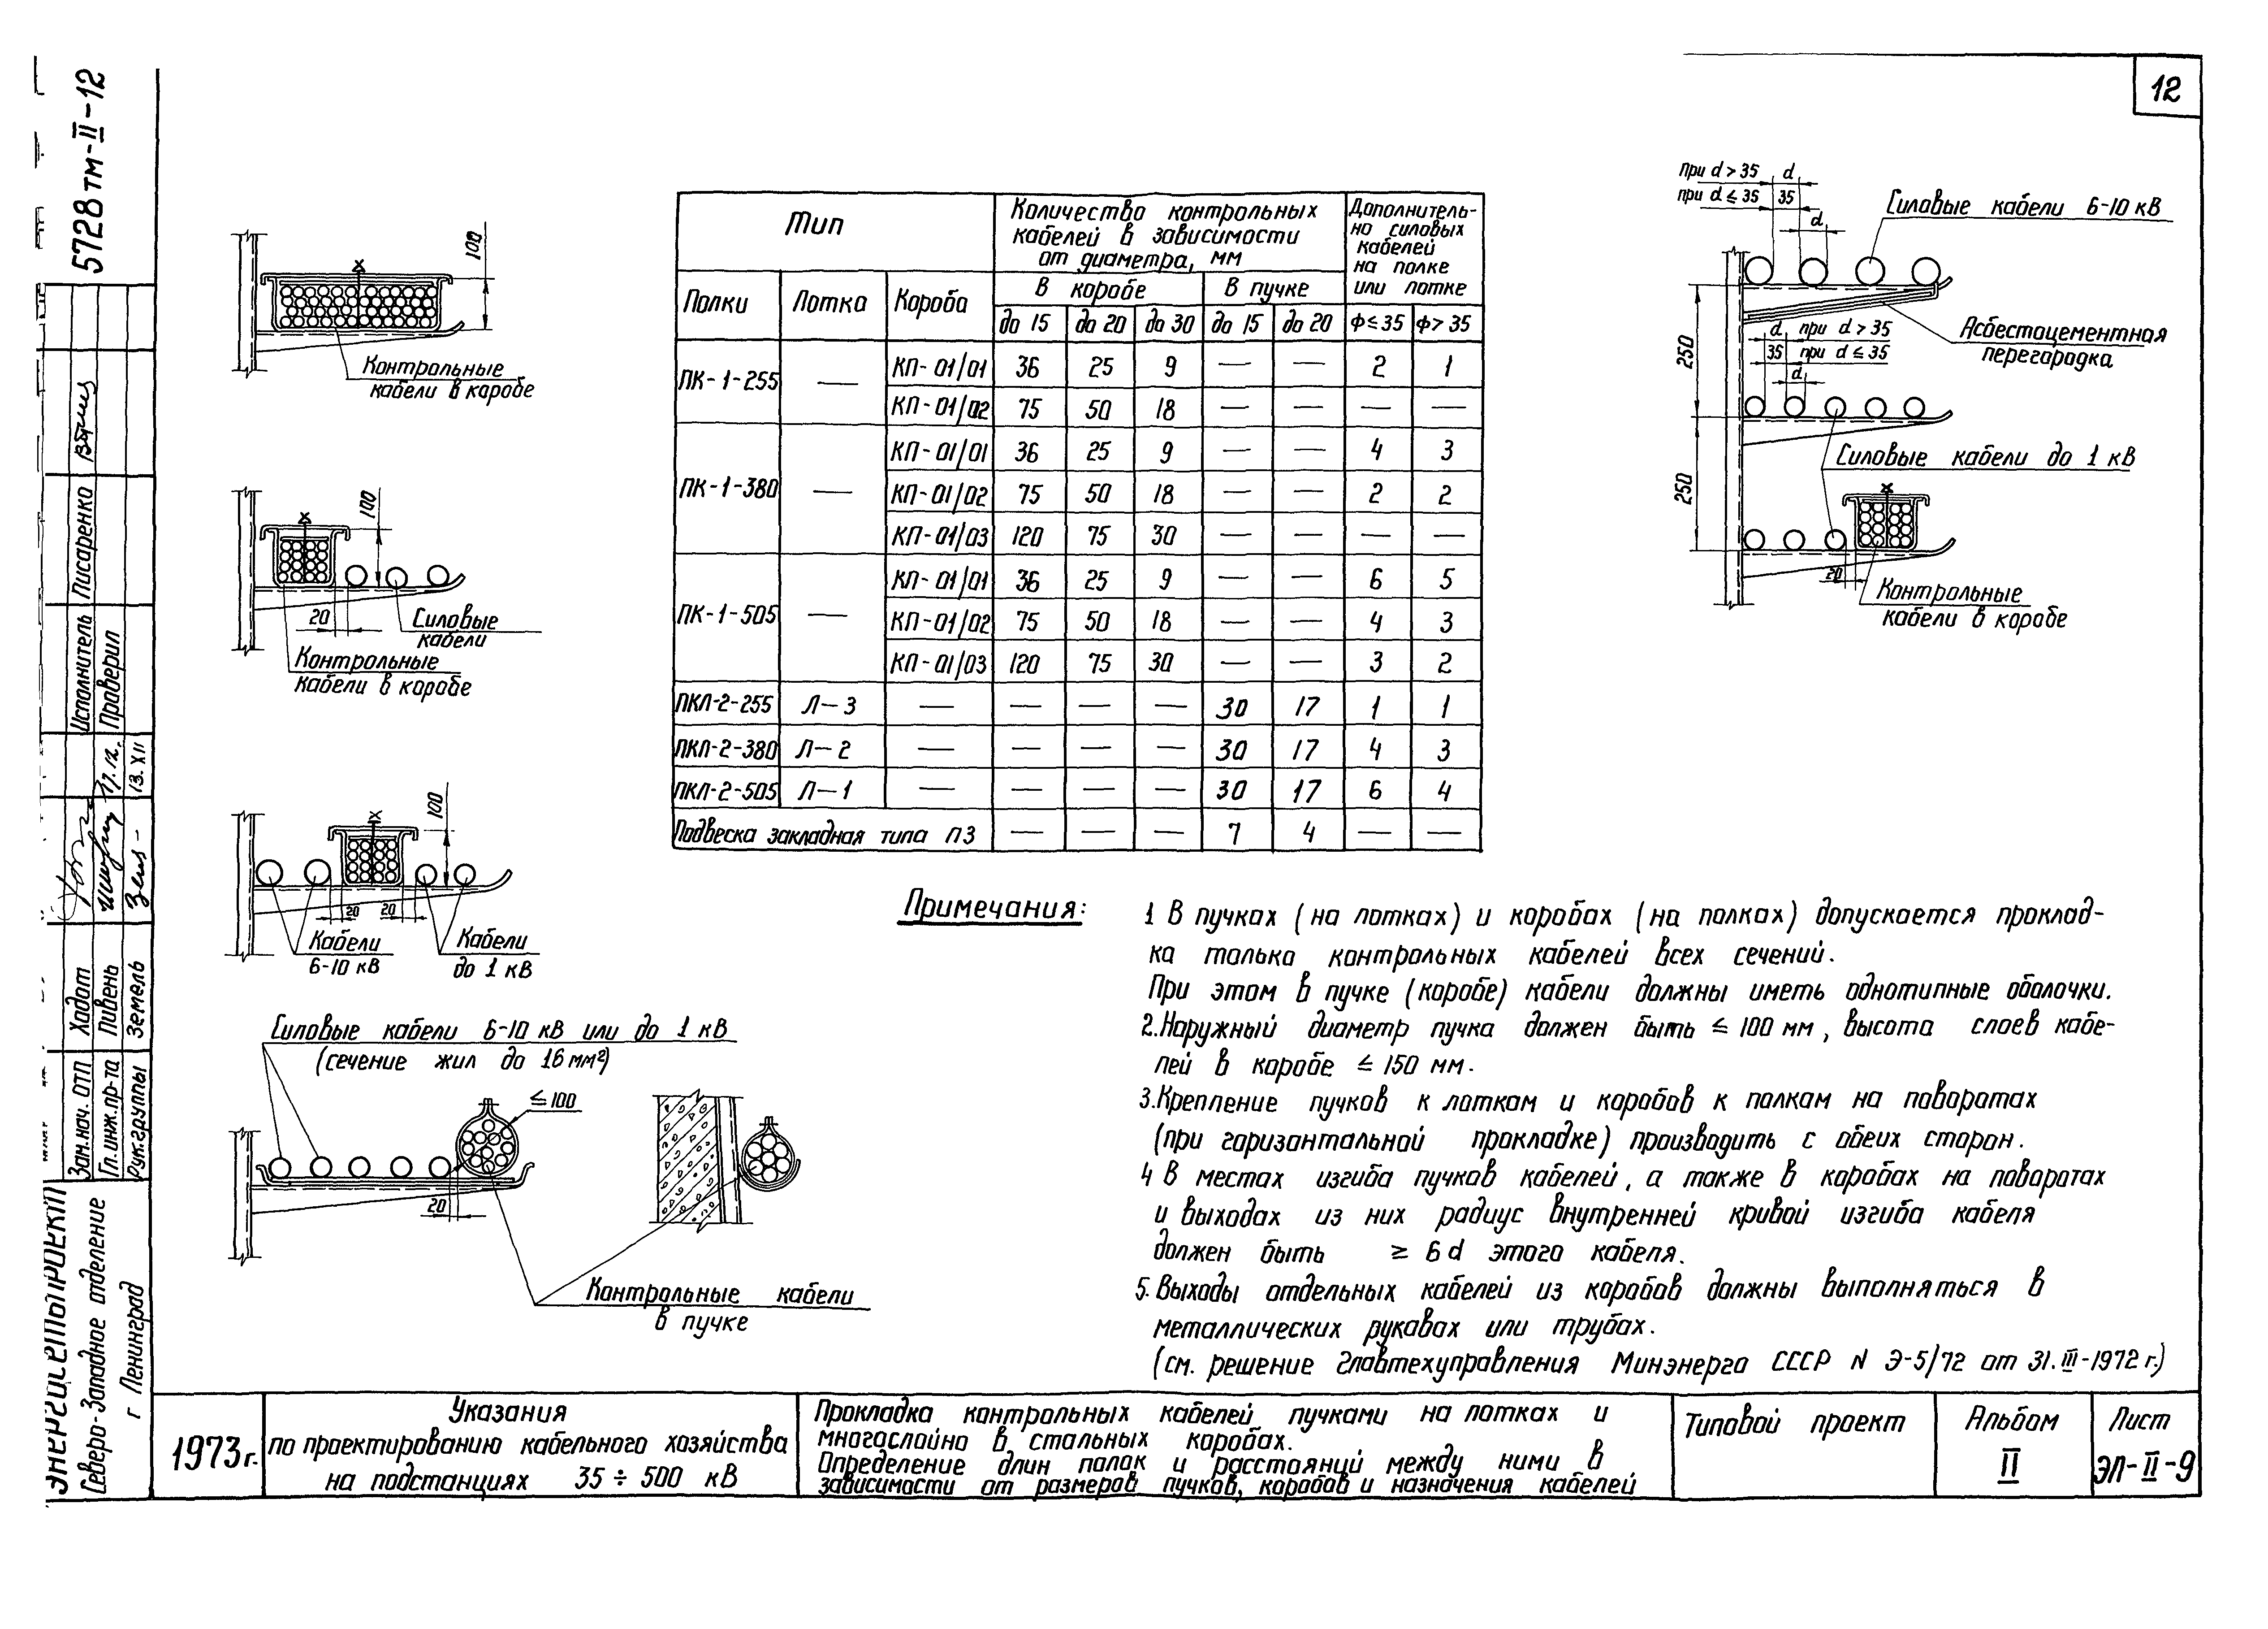 12
5728тм-II-12
100
Контрольные
кабели в коробе
100
20
Силовые
кабели
Контрольные
кабели в коробе
100
20
20
Кабели
6-10 кВ
Кабели
до 1 кВ
Силовые кабели 6-10 кВ или до 1 кВ
(сечение жил до 16 мм²)
≤100
20
Контрольные кабели
в пучке
Тип
Количество контрольных
кабелей в зависимости
от диаметра, мм
Дополнитель-
но силовых
кабелей
на полке
или лотке
Полки Лотка Короба В коробе В пучке
до 15 до 20 до 30 до 15 до 20 ф≤35 ф>35
ПК-1-255 — КП-01/01 36 25 9 — — 2 1
КП-01/02 75 50 18 — — — —
ПК-1-380 — КП-01/01 36 25 9 — — 4 3
КП-01/02 75 50 18 — — 2 2
КП-01/03 120 75 30 — — — —
ПК-1-505 — КП-01/01 36 25 9 — — 6 5
КП-01/02 75 50 18 — — 4 3
КП-01/03 120 75 30 — — 3 2
ПКЛ-2-255 Л-3 — — — — 30 17 1 1
ПКЛ-2-380 Л-2 — — — — 30 17 4 3
ПКЛ-2-505 Л-1 — — — — 30 17 6 4
Подвеска закладная типа ПЗ — — — 7 4 — —
при d>35 d
при d≤35 35
d
Силовые кабели 6-10 кВ
Асбестоцементная
перегородка
250
d при d>35
35 при d≤35
d
Силовые кабели до 1 кВ
250
20
Контрольные
кабели в коробе
Примечания:
1 В пучках (на лотках) и коробах (на полках) допускается проклад-
ка только контрольных кабелей всех сечений.
При этом в пучке (коробе) кабели должны иметь однотипные оболочки.
2.Наружный диаметр пучка должен быть ≤ 100 мм, высота слоев кабе-
лей в коробе ≤ 150 мм.
3.Крепление пучков к лоткам и коробов к полкам на поворотах
(при горизонтальной прокладке) производить с обеих сторон.
4 В местах изгиба пучков кабелей, а также в коробах на поворотах
и выходах из них радиус внутренней кривой изгиба кабеля
должен быть ≥ 6d этого кабеля.
5. Выходы отдельных кабелей из коробов должны выполняться в
металлических рукавах или трубах.
(см. решение Главтехуправления Минэнерго СССР N Э-5/72 от 31.III-1972 г.)
Исполнитель Писаренко
Проверил
Зам.нач. ОТП Хадот
Гл.инж.пр-та Пивень 17.12.
Рук.группы Земель 13.XII
Энергосетьпроект
Северо-Западное отделение
г Ленинград
1973г.
Указания
по проектированию кабельного хозяйства
на подстанциях 35÷500 кВ
Прокладка контрольных кабелей пучками на лотках и
многослойно в стальных коробах.
Определение длин полок и расстояний между ними в
зависимости от размеров пучков, коробов и назначения кабелей
Типовой проект
Альбом
II
Лист
ЭЛ-II-9